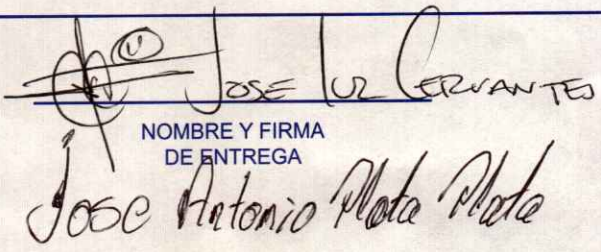 JOSE LUZ CERVANTES
NOMBRE Y FIRMA
DE ENTREGA
Jose Antonio Mata Mata